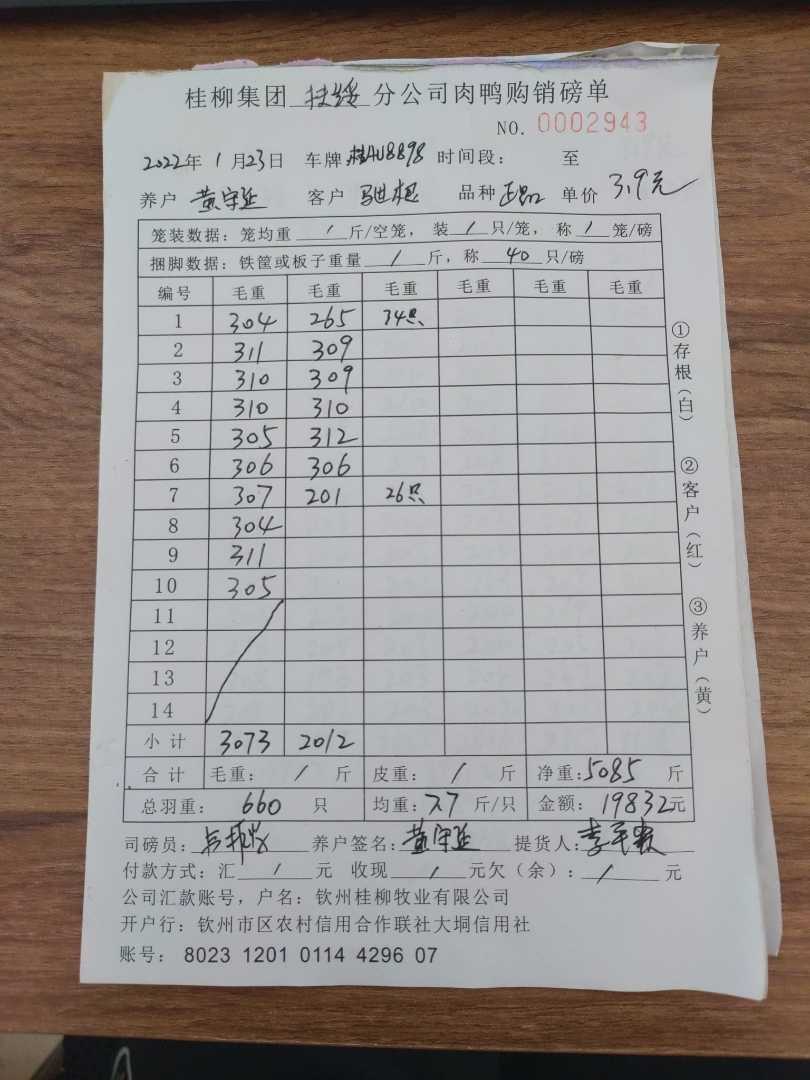 桂柳集团 扶绥 分公司肉鸭购销磅单
NO. 0002943
2022年 1月23日 车牌 桂AU8898 时间段： 至
养户 黄守延 客户 品种 正品 单价 3.9元
笼装数据：笼均重 / 斤/空笼，装 / 只/笼，称 / 笼/磅
捆脚数据：铁筐或板子重量 / 斤，称 40 只/磅
编号 毛重 毛重 毛重 毛重 毛重 毛重
1 304 265 34只
2 311 309
3 310 309
4 310 310
5 305 312
6 306 306
7 307 201 26只
8 304
9 311
10 305
11
12
13
14
小计 3073 2012
合计 毛重： / 斤 皮重： / 斤 净重：5085 斤
总羽重： 660 只 均重：7.7 斤/只 金额：19832元
司磅员： 养户签名：黄守延 提货人：
付款方式：汇 / 元 收现 / 元欠（余）： / 元
公司汇款账号，户名：钦州桂柳牧业有限公司
开户行：钦州市区农村信用合作联社大垌信用社
账号： 8023 1201 0114 4296 07
①存根（白）
②客户（红）
③养户（黄）